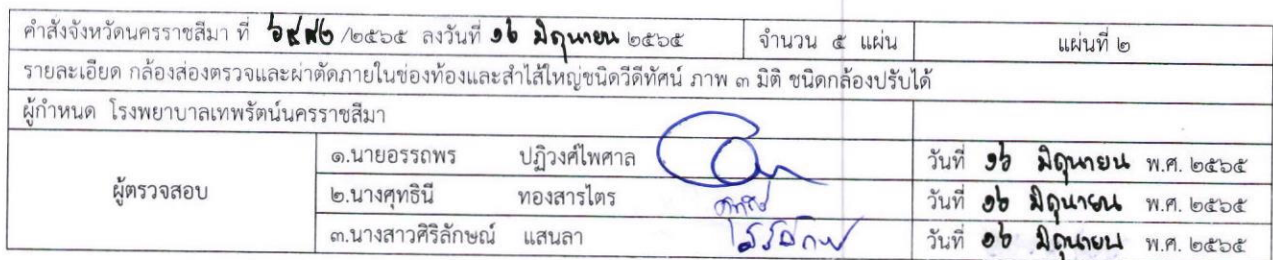 คำสั่งจังหวัดนครราชสีมา ที่ ๖๙๗๖/๒๕๖๕ ลงวันที่ ๑๖ มิถุนายน ๒๕๖๕ จำนวน ๕ แผ่น แผ่นที่ ๒
รายละเอียด กล้องส่องตรวจและผ่าตัดภายในช่องท้องและลำไส้ใหญ่ชนิดวีดีทัศน์ ภาพ ๓ มิติ ชนิดกล้องปรับได้
ผู้กำหนด โรงพยาบาลเทพรัตน์นครราชสีมา
๑.นายอรรถพร ปฏิวงศ์ไพศาล วันที่ ๑๖ มิถุนายน พ.ศ. ๒๕๖๕
ผู้ตรวจสอบ ๒.นางศุทธินี ทองสารไตร วันที่ ๑๖ มิถุนายน พ.ศ. ๒๕๖๕
๓.นางสาวศิริลักษณ์ แสนลา วันที่ ๑๖ มิถุนายน พ.ศ. ๒๕๖๕